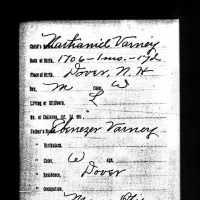 Child's Name Nathaniel Varney
Date of Birth, 1706-1mo.-17d
Place of Birth, Dover, N.H.
Sex, M Color, W
Living or Stillborn, L
No. of Children, 1st, 2d, etc.
Father's Name Ebenezer Varney
" Birthplace,
" Color, W Age,
" Residence, Dover
" Occupation,